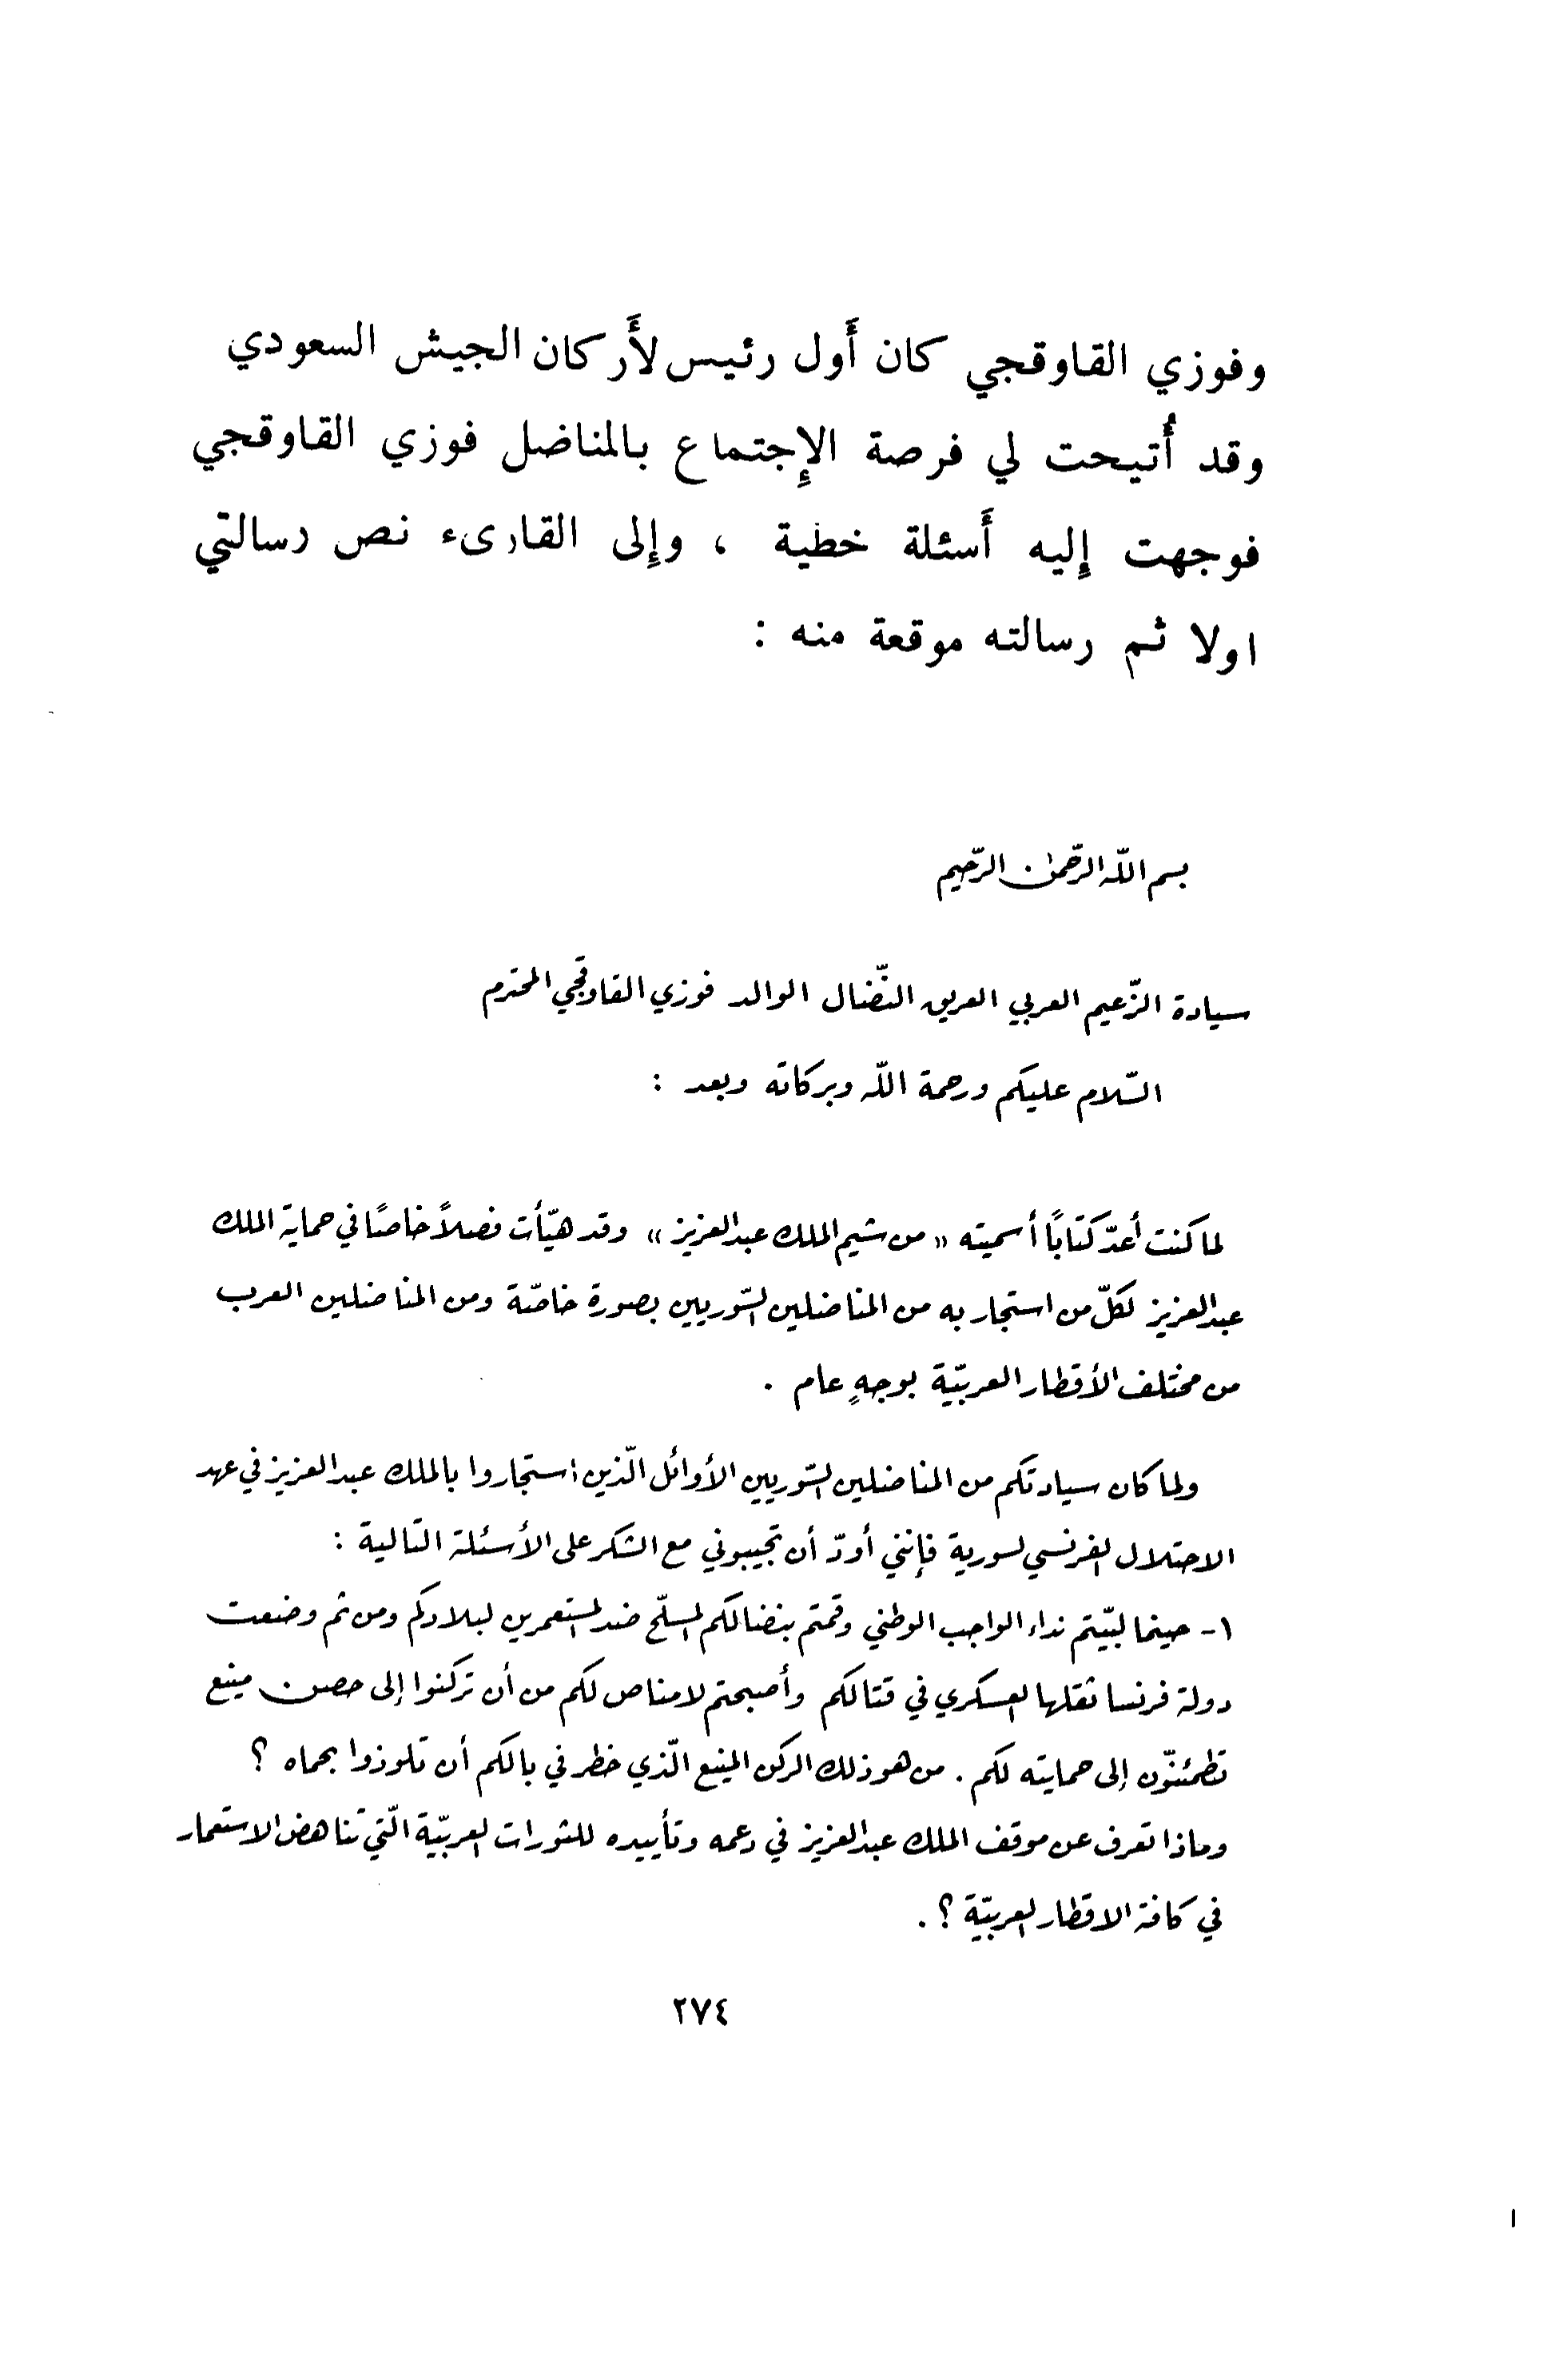 وفوزي القاوقجي كان أَول رئيس لأَركان الجيش السعودي
وقد أُتيحت لي فرصة الإِجتماع بالمناضل فوزي القاوقجي
فوجهت إِليه أَسئلة خطية ، وإِلى القارىء نص رسالتي
اولا ثم رسالته موقعة منه :
بسم اللّه الرّحمٰن الرّحيم
سيادة الزّعيم العربي العريق النّضال الوالد فوزي القاوقجي المحترم
السّلام عليكم ورحمة اللّه وبركاته وبعد :
لما كنت أعدّ كتابًا أسميته « من شيم الملك عبدالعزيز » وقد هيّأت فصلاً خاصًا في حماية الملك
عبدالعزيز لكلّ من استجار به من المناضلين السّوريين بصورة خاصّة ومن المناضلين العرب
من مختلف الأقطار العربيّة بوجهٍ عام .
ولما كان سيادتكم من المناضلين السّوريين الأوائل الّذين استجاروا بالملك عبدالعزيز في عهد
الاحتلال الفرنسي لسورية فإنني أودّ أن تجيبوني مع الشكر على الأسئلة التّالية :
١- حينما لبّيتم نداء الواجب الوطني وقمتم بنضالكم المسلّح ضد المستعمرين لبلادكم ومن ثم وضعت
دولة فرنسا ثقلها العسكري في قتالكم وأصبحتم لامناص لكم من أن تركنوا إلى حصن منيع
تطمئنّون إلى حمايته لكم . من هو ذلك الركن المنيع الّذي خطر في بالكم أن تلوذوا بحماه ؟
وماذا تعرف عن موقف الملك عبدالعزيز في دعمه وتأييده للثورات العربيّة الّتي تناهض الاستعمار
في كافة الاقطار العربيّة ؟ .
٢٧٤